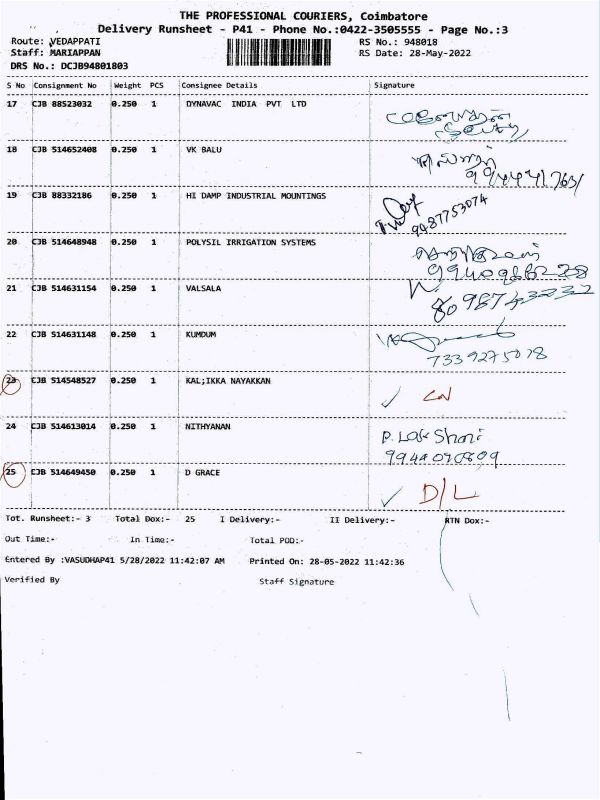 THE PROFESSIONAL COURIERS, Coimbatore
Delivery Runsheet - P41 - Phone No.:0422-3505555 - Page No.:3
Route: VEDAPPATI RS No.: 948018
Staff: MARIAPPAN RS Date: 28-May-2022
DRS No.: DCJB94801803
S No Consignment No Weight PCS Consignee Details Signature
17 CJB 88523032 0.250 1 DYNAVAC INDIA PVT LTD
18 CJB 514652408 0.250 1 VK BALU
19 CJB 88332186 0.250 1 HI DAMP INDUSTRIAL MOUNTINGS
9487753074
20 CJB 514648948 0.250 1 POLYSIL IRRIGATION SYSTEMS
21 CJB 514631154 0.250 1 VALSALA
8098743232
22 CJB 514631148 0.250 1 KUMDUM
7339275078
23 CJB 514548527 0.250 1 KAL;IKKA NAYAKKAN
24 CJB 514613014 0.250 1 NITHYANAN
P. Lak Shmi
25 CJB 514649450 0.250 1 D GRACE
D/L
Tot. Runsheet:- 3 Total Dox:- 25 I Delivery:- II Delivery:- RTN Dox:-
Out Time:- In Time:- Total POD:-
Entered By :VASUDHAP41 5/28/2022 11:42:07 AM Printed On: 28-05-2022 11:42:36
Verified By Staff Signature